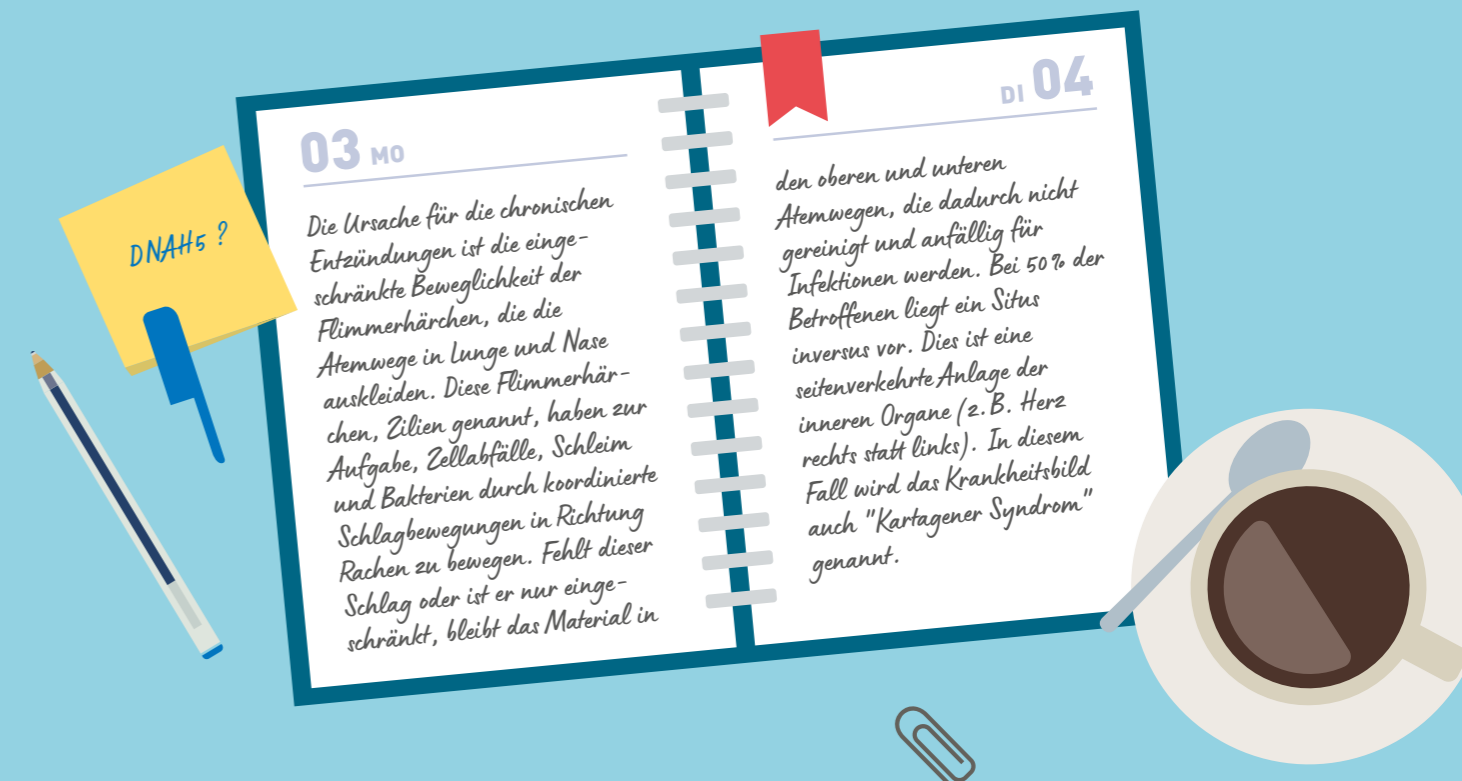 DNAH5 ?
03 MO
Die Ursache für die chronischen
Entzündungen ist die einge-
schränkte Beweglichkeit der
Flimmerhärchen, die die
Atemwege in Lunge und Nase
auskleiden. Diese Flimmerhär-
chen, Zilien genannt, haben zur
Aufgabe, Zellabfälle, Schleim
und Bakterien durch koordinierte
Schlagbewegungen in Richtung
Rachen zu bewegen. Fehlt dieser
Schlag oder ist er nur einge-
schränkt, bleibt das Material in
DI 04
den oberen und unteren
Atemwegen, die dadurch nicht
gereinigt und anfällig für
Infektionen werden. Bei 50 % der
Betroffenen liegt ein Situs
inversus vor. Dies ist eine
seitenverkehrte Anlage der
inneren Organe (z. B. Herz
rechts statt links). In diesem
Fall wird das Krankheitsbild
auch "Kartagener Syndrom"
genannt.